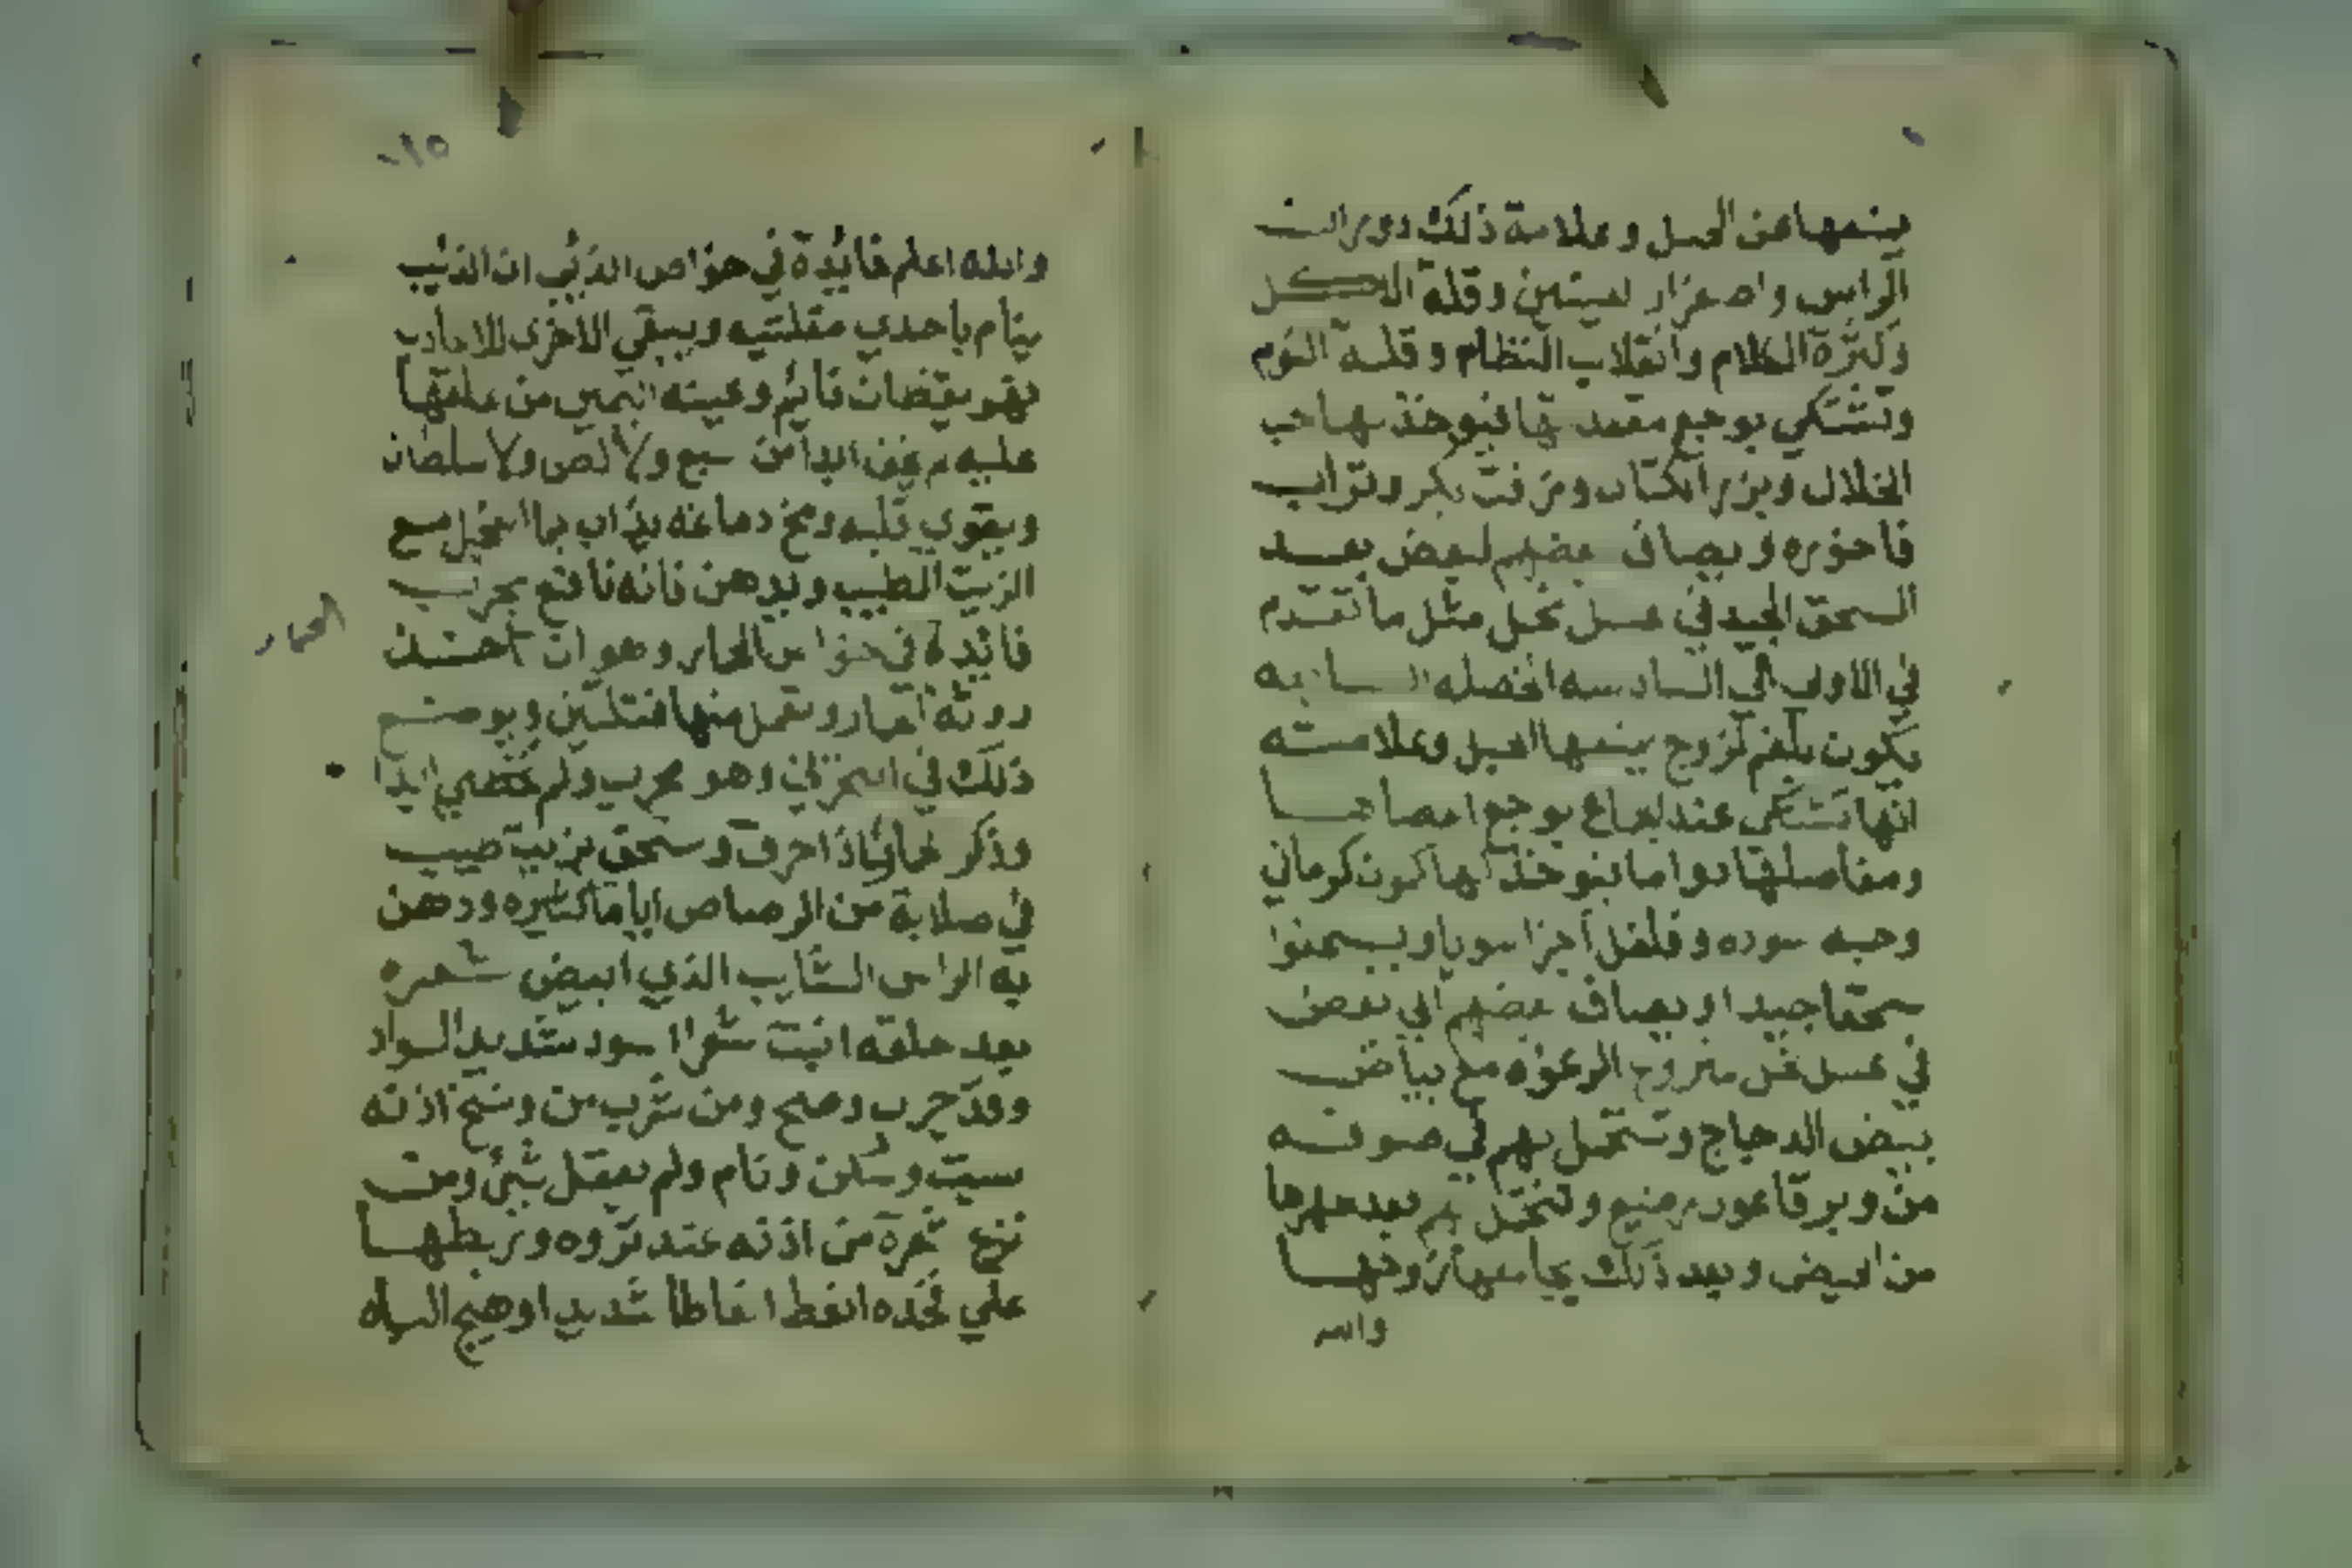 يمنعها عن الحبل وعلامة ذلك دوران
الراس واصفرار لعينين وقلة الاكل
وكثرة الكلام وانقلاب النظام وقلة النوم
وتشتكي بوجع مقعدتها فيوخذ لها حب
الخلال وبزر الكتان وزفت بكر وتراب
فاخوره ويصاف بعضهم لبعض بعد
السحق الجيد في عسل نحل مثل ما تقدم
في الاوله الي السادسه الخصله السابعه
يكون بلغم لزوج يمنعها الحبل وعلامته
انها تشتكي عند الجماع بوجع اعصابها
ومفاصلها دواها بنوخذ لها كمون كرماني
وحبه سوده وفلفل اجزا سويا ويسحنوا
سحقا جيدا ويصاف بعضهم الي بعض
في عسل نحل منزوع الرغوه مع بياض
بيض الدجاج وتتحمل بهم في صوفه
من وبر قاعود رضيع وتتحمل بهم بعد طهرها
من الحيض وبعد ذلك يجامعها زوجها
والله
٥١٠
والله اعلم فايدة في خواص الذئب ان الذئب
ينام باحدي مقلتيه ويبقي الاخرى للاعادي
فهو يقضان نائم وعينه اليمين من علقها
عليه لم يخف ابدا من سبع ولا لص ولا سلطان
ويقوي قلبه ومخ دماغه يذاب بماء الفجل مع
الزيت الطيب ويدهن فانه نافع مجرب
فائدة في خواص الحمار وهو ان اخذت
روثة الحمار وتعمل منها فتلتين ويوضع
ذلك في المنخرين وهو مجرب ولم تخطي ابدا
وذكر لحافها اذا احرق وسحق بزيت طيب
في صلابة من الرصاص اياما كثيره ودهن
به الراس الشايب الذي ابيض شعره
بعد حلقه انبت شعرا اسود شديد السواد
وقد جرب وصح ومن شرب من وسخ اذنه
سبت وسكن ونام ولم يعقل شيء ومن
نزع شعرة من اذنه عند نزوه وربطها
علي فخذه انعظ انعاظا شديدا وهيج الباه
الحمار